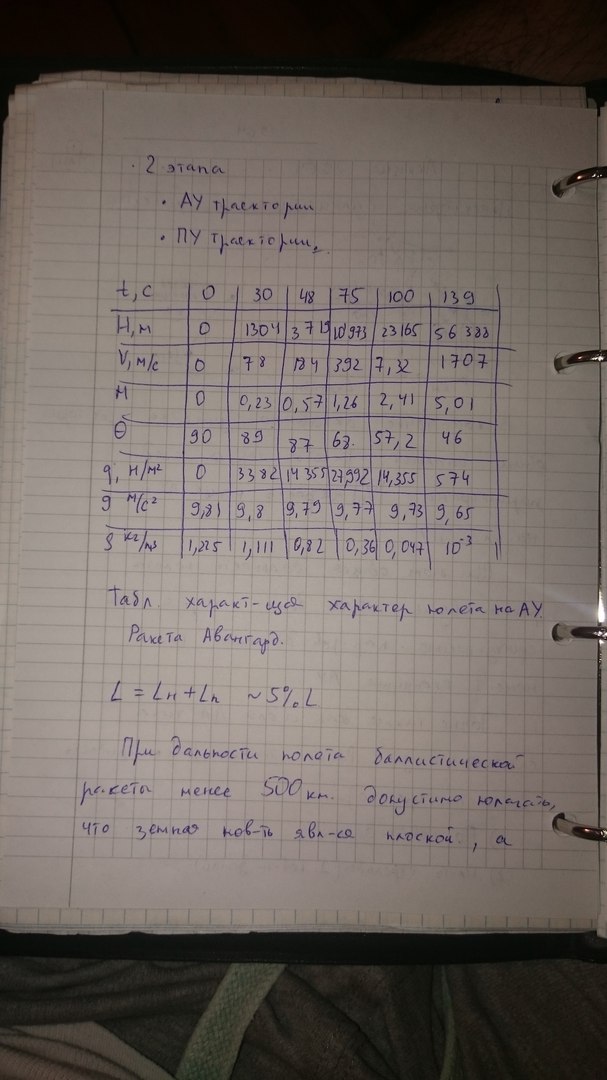 · 2 этапа
• АУ траектории
• ПУ траектории.
t, с 0 30 48 75 100 139
H, м 0 1304 3719 10973 23165 56388
V, м/с 0 78 184 392 7,32 1707
M 0 0,23 0,57 1,26 2,41 5,01
Θ 90 89 87 68. 57,2 46
q, н/м² 0 3382 14355 27,992 14,355 574
g м/с² 9,81 9,8 9,79 9,77 9,73 9,65
ρ кг/м3 1,225 1,111 0,82 0,36 0,047 10⁻³
Табл. характ-щая характер полёта на АУ.
Ракета Авангард.
L = Lн + Lк ~ 5% L
При дальности полета баллистической
ракеты менее 500 км. допустимо полагать,
что земная пов-ть явл-ся плоской, а